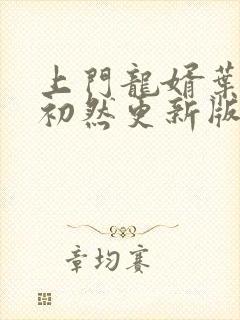 上門龍婿葉
初然更新版
章均賽